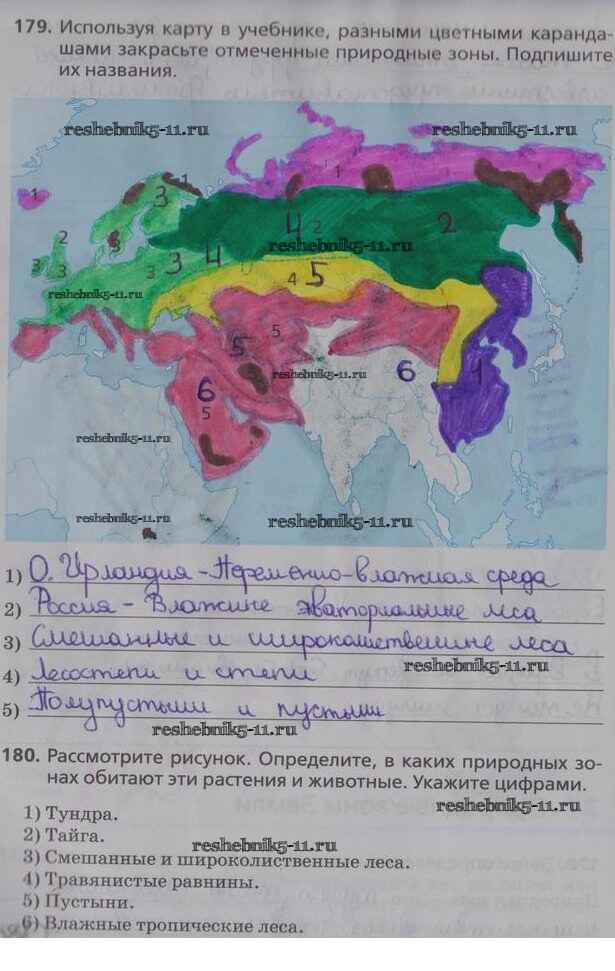 179. Используя карту в учебнике, разными цветными каранда-
шами закрасьте отмеченные природные зоны. Подпишите
их названия.
reshebnik5-11.ru
reshebnik5-11.ru
1 1 1
3
2 3 3 3 3 4 4 2 2
reshebnik5-11.ru
reshebnik5-11.ru
4 5
5 5 6 1
reshebnik5-11.ru
6
5
reshebnik5-11.ru
reshebnik5-11.ru
reshebnik5-11.ru
1) О. Ирландия - Переменно-влажная среда
2) Россия - Влажные экваториальные леса
3) Смешанные и широколиственные леса
4) Лесостепи и степи
reshebnik5-11.ru
5) Полупустыни и пустыни
reshebnik5-11.ru
180. Рассмотрите рисунок. Определите, в каких природных зо-
нах обитают эти растения и животные. Укажите цифрами.
1) Тундра.
2) Тайга.
reshebnik5-11.ru
3) Смешанные и широколиственные леса.
4) Травянистые равнины.
5) Пустыни.
6) Влажные тропические леса.
reshebnik5-11.ru